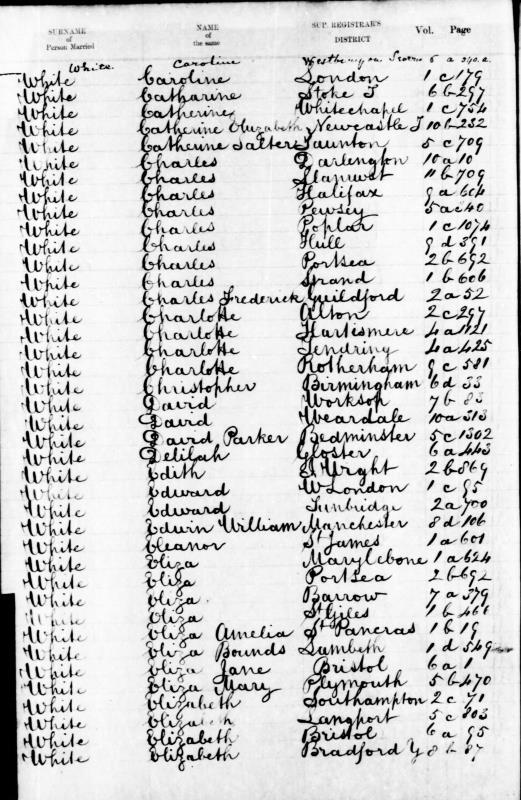 SURNAME of Person Married NAME of the same SUP. REGISTRAR'S DISTRICT Vol. Page
White Caroline 6 a
White Caroline London 1 c 179
White Catharine Stoke T 6 b 297
White Catherine Whitechapel 1 c 754
White Catherine Elizabeth Newcastle T 10 b 232
White Catherine Salter Taunton 5 c 709
White Charles Darlington 10 a 10
White Charles Llanrwst 11 b 709
White Charles Halifax 9 a 604
White Charles Pewsey 5 a 40
White Charles Poplar 1 c 1074
White Charles Hull 9 d 391
White Charles Portsea 2 b 692
White Charles Strand 1 b 606
White Charles Frederick Guildford 2 a 52
White Charlotte Alton 2 c 297
White Charlotte Hartismere 4 a 1121
White Charlotte Tendring 4 a 425
White Charlotte Rotherham 9 c 581
White Christopher Birmingham 6 d 33
White David Worksop 7 b 83
White David Weardale 10 a 313
White David Parker Bedminster 5 c 1302
White Delilah Gloster 6 a 443
White Edith I Wight 2 b 869
White Edward W London 1 c 95
White Edward Tunbridge 2 a 700
White Edwin William Manchester 8 d 106
White Eleanor St James 1 a 601
White Eliza Marylebone 1 a 624
White Eliza Portsea 2 b 692
White Eliza Barrow 7 a 379
White Eliza St Giles 1 b 466
White Eliza Amelia St Pancras 1 b 19
White Eliza Bounds Lambeth 1 d 549
White Eliza Jane Bristol 6 a 1
White Eliza Mary Plymouth 5 b 470
White Elizabeth Southampton 2 c 71
White Elizabeth Langport 5 c 803
White Elizabeth Bristol 6 a 95
White Elizabeth Bradford Y 8 b 87